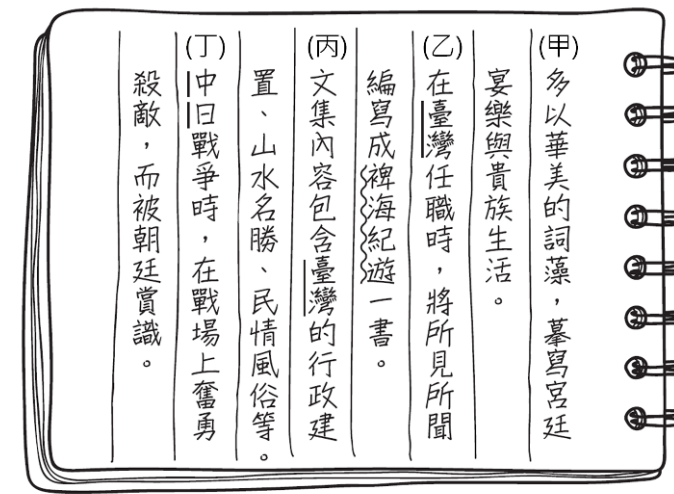 (甲)多以華美的詞藻，摹寫宮廷
宴樂與貴族生活。
(乙)在臺灣任職時，將所見所聞
編寫成裨海紀遊一書。
(丙)文集內容包含臺灣的行政建
置、山水名勝、民情風俗等。
(丁)中日戰爭時，在戰場上奮勇
殺敵，而被朝廷賞識。